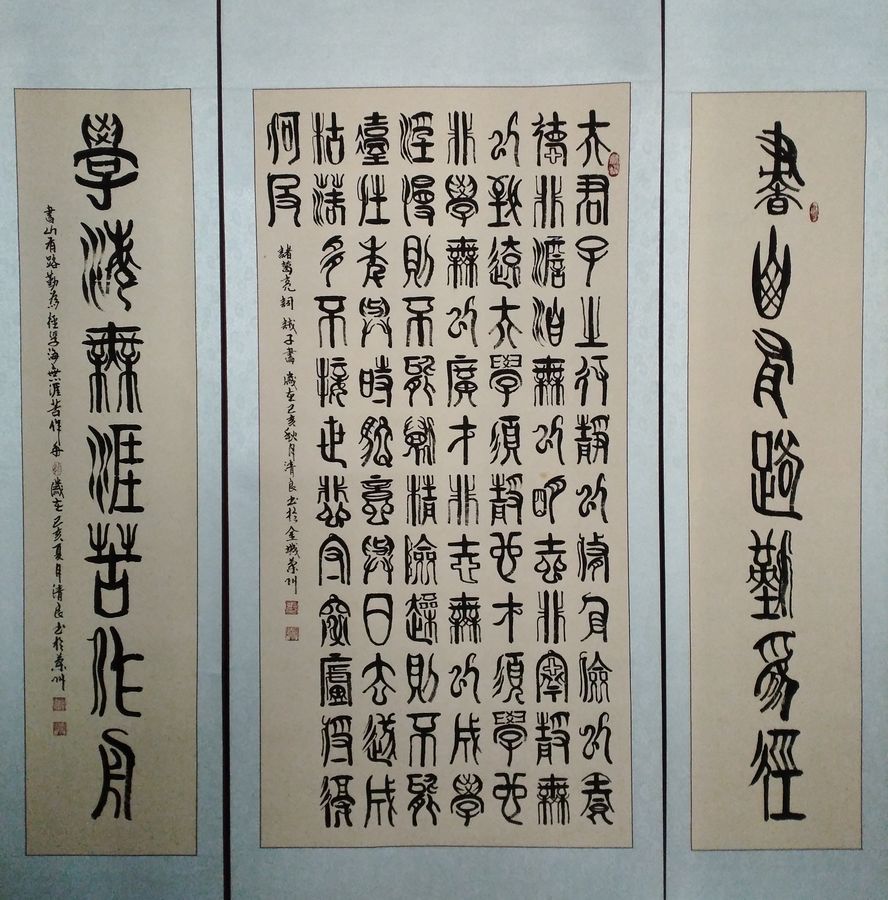 書山有路勤為徑
夫君子之行靜以修身儉以養
德非澹泊無以明志非寧靜無
以致遠夫學須靜也才須學也
非學無以廣才非志無以成學
淫慢則不能勵精險躁則不能
性年與時馳意與日去遂成
枯落多不接世悲守窮廬將復
何及
諸葛亮詞 誡子書 歲在己亥秋月清良书於金城兰州
學海無涯苦作舟
書山有路勤為徑学海無涯苦作舟 歲在己亥夏月清良书於兰州